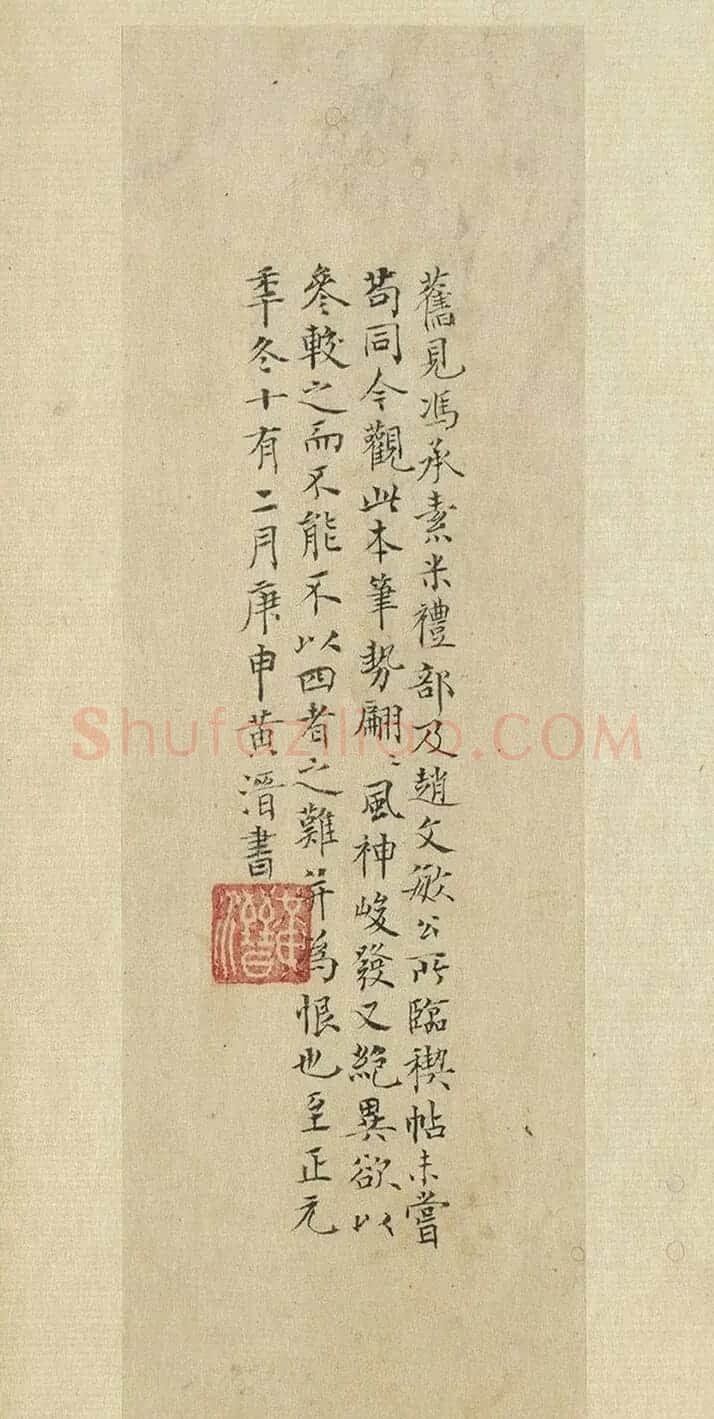 舊見馮承素米禮部及趙文敏公所臨禊帖未嘗
苟同今觀此本筆勢翩〻風神峻發又絶異欲以
參較之而不能不以四者之難并為恨也至正元
秊冬十有二月庚申黄溍書
Shufaziliao.COM